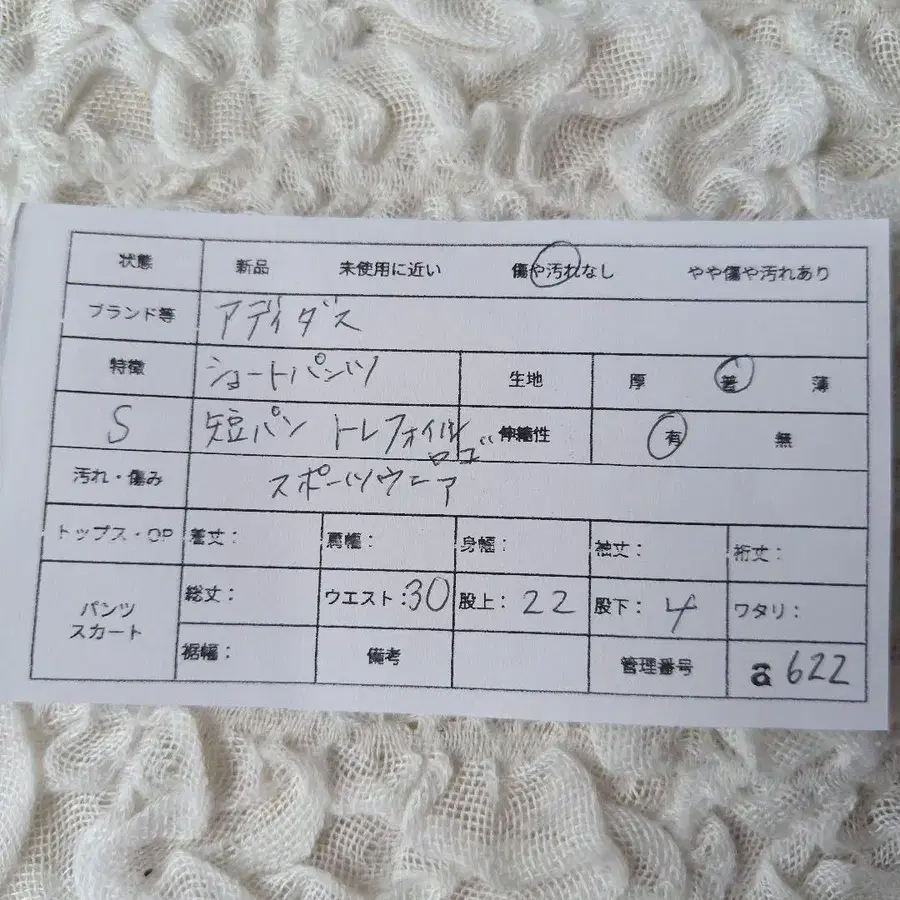 状態 新品 未使用に近い 傷や汚れなし やや傷や汚れあり
ブランド等 アディダス
特徴 ショートパンツ 生地 厚 普 薄
S 短パン トレフォイル ロゴ 伸縮性 有 無
汚れ・傷み スポーツウェア
トップス・OP 着丈: 肩幅: 身幅: 袖丈: 裄丈:
パンツ スカート 総丈: ウエスト:30 股上: 22 股下: 4 ワタリ:
裾幅: 備考 管理番号 a622